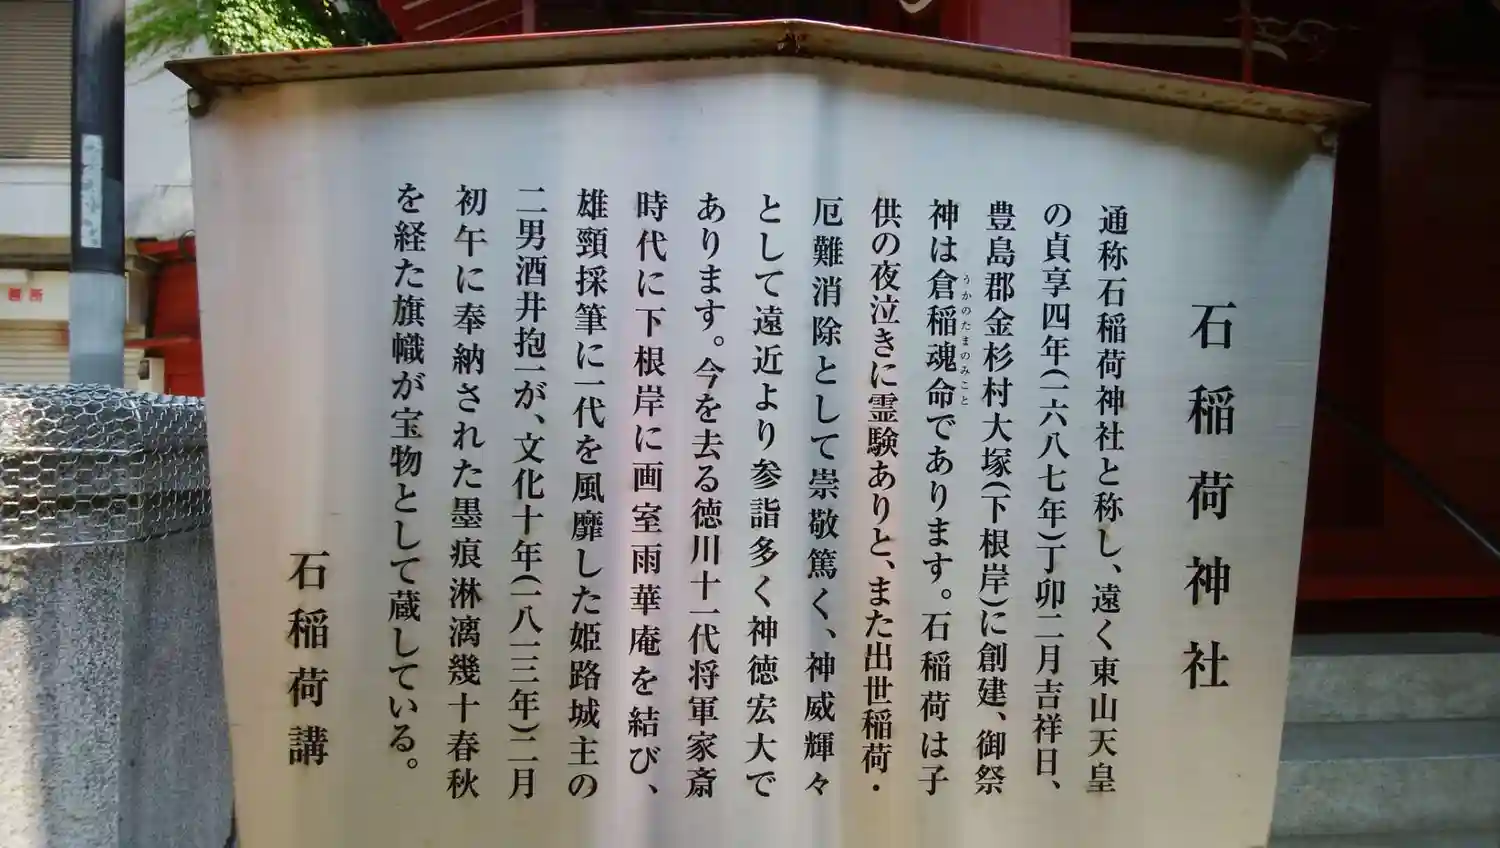 石稲荷神社
通称石稲荷神社と称し、遠く東山天皇
の貞享四年(一六八七年)丁卯二月吉祥日、
豊島郡金杉村大塚(下根岸)に創建、御祭
神は倉稲魂命であります。石稲荷は子
うかのたまのみこと
供の夜泣きに霊験ありと、また出世稲荷・
厄難消除として崇敬篤く、神威輝々
として遠近より参詣多く神徳宏大で
あります。今を去る徳川十一代将軍家斎
時代に下根岸に画室雨華庵を結び、
雄頸採筆に一代を風靡した姫路城主の
二男酒井抱一が、文化十年(一八一三年)二月
初午に奉納された墨痕淋漓幾十春秋
を経た旗幟が宝物として蔵している。
石稲荷講